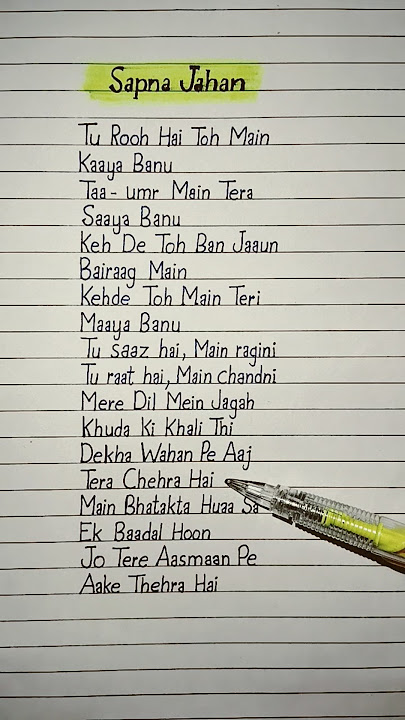 Sapna Jahan
Tu Rooh Hai Toh Main
Kaaya Banu
Taa-umr Main Tera
Saaya Banu
Keh De Toh Ban Jaaun
Bairaag Main
Kehde Toh Main Teri
Maaya Banu
Tu saaz hai, Main ragini
Tu raat hai, Main chandni
Mere Dil Mein Jagah
Khuda Ki Khali Thi
Dekha Wahan Pe Aaj
Tera Chehra Hai
Main Bhatakta Huaa Sa
Ek Baadal Hoon
Jo Tere Aasmaan Pe
Aake Thehra Hai